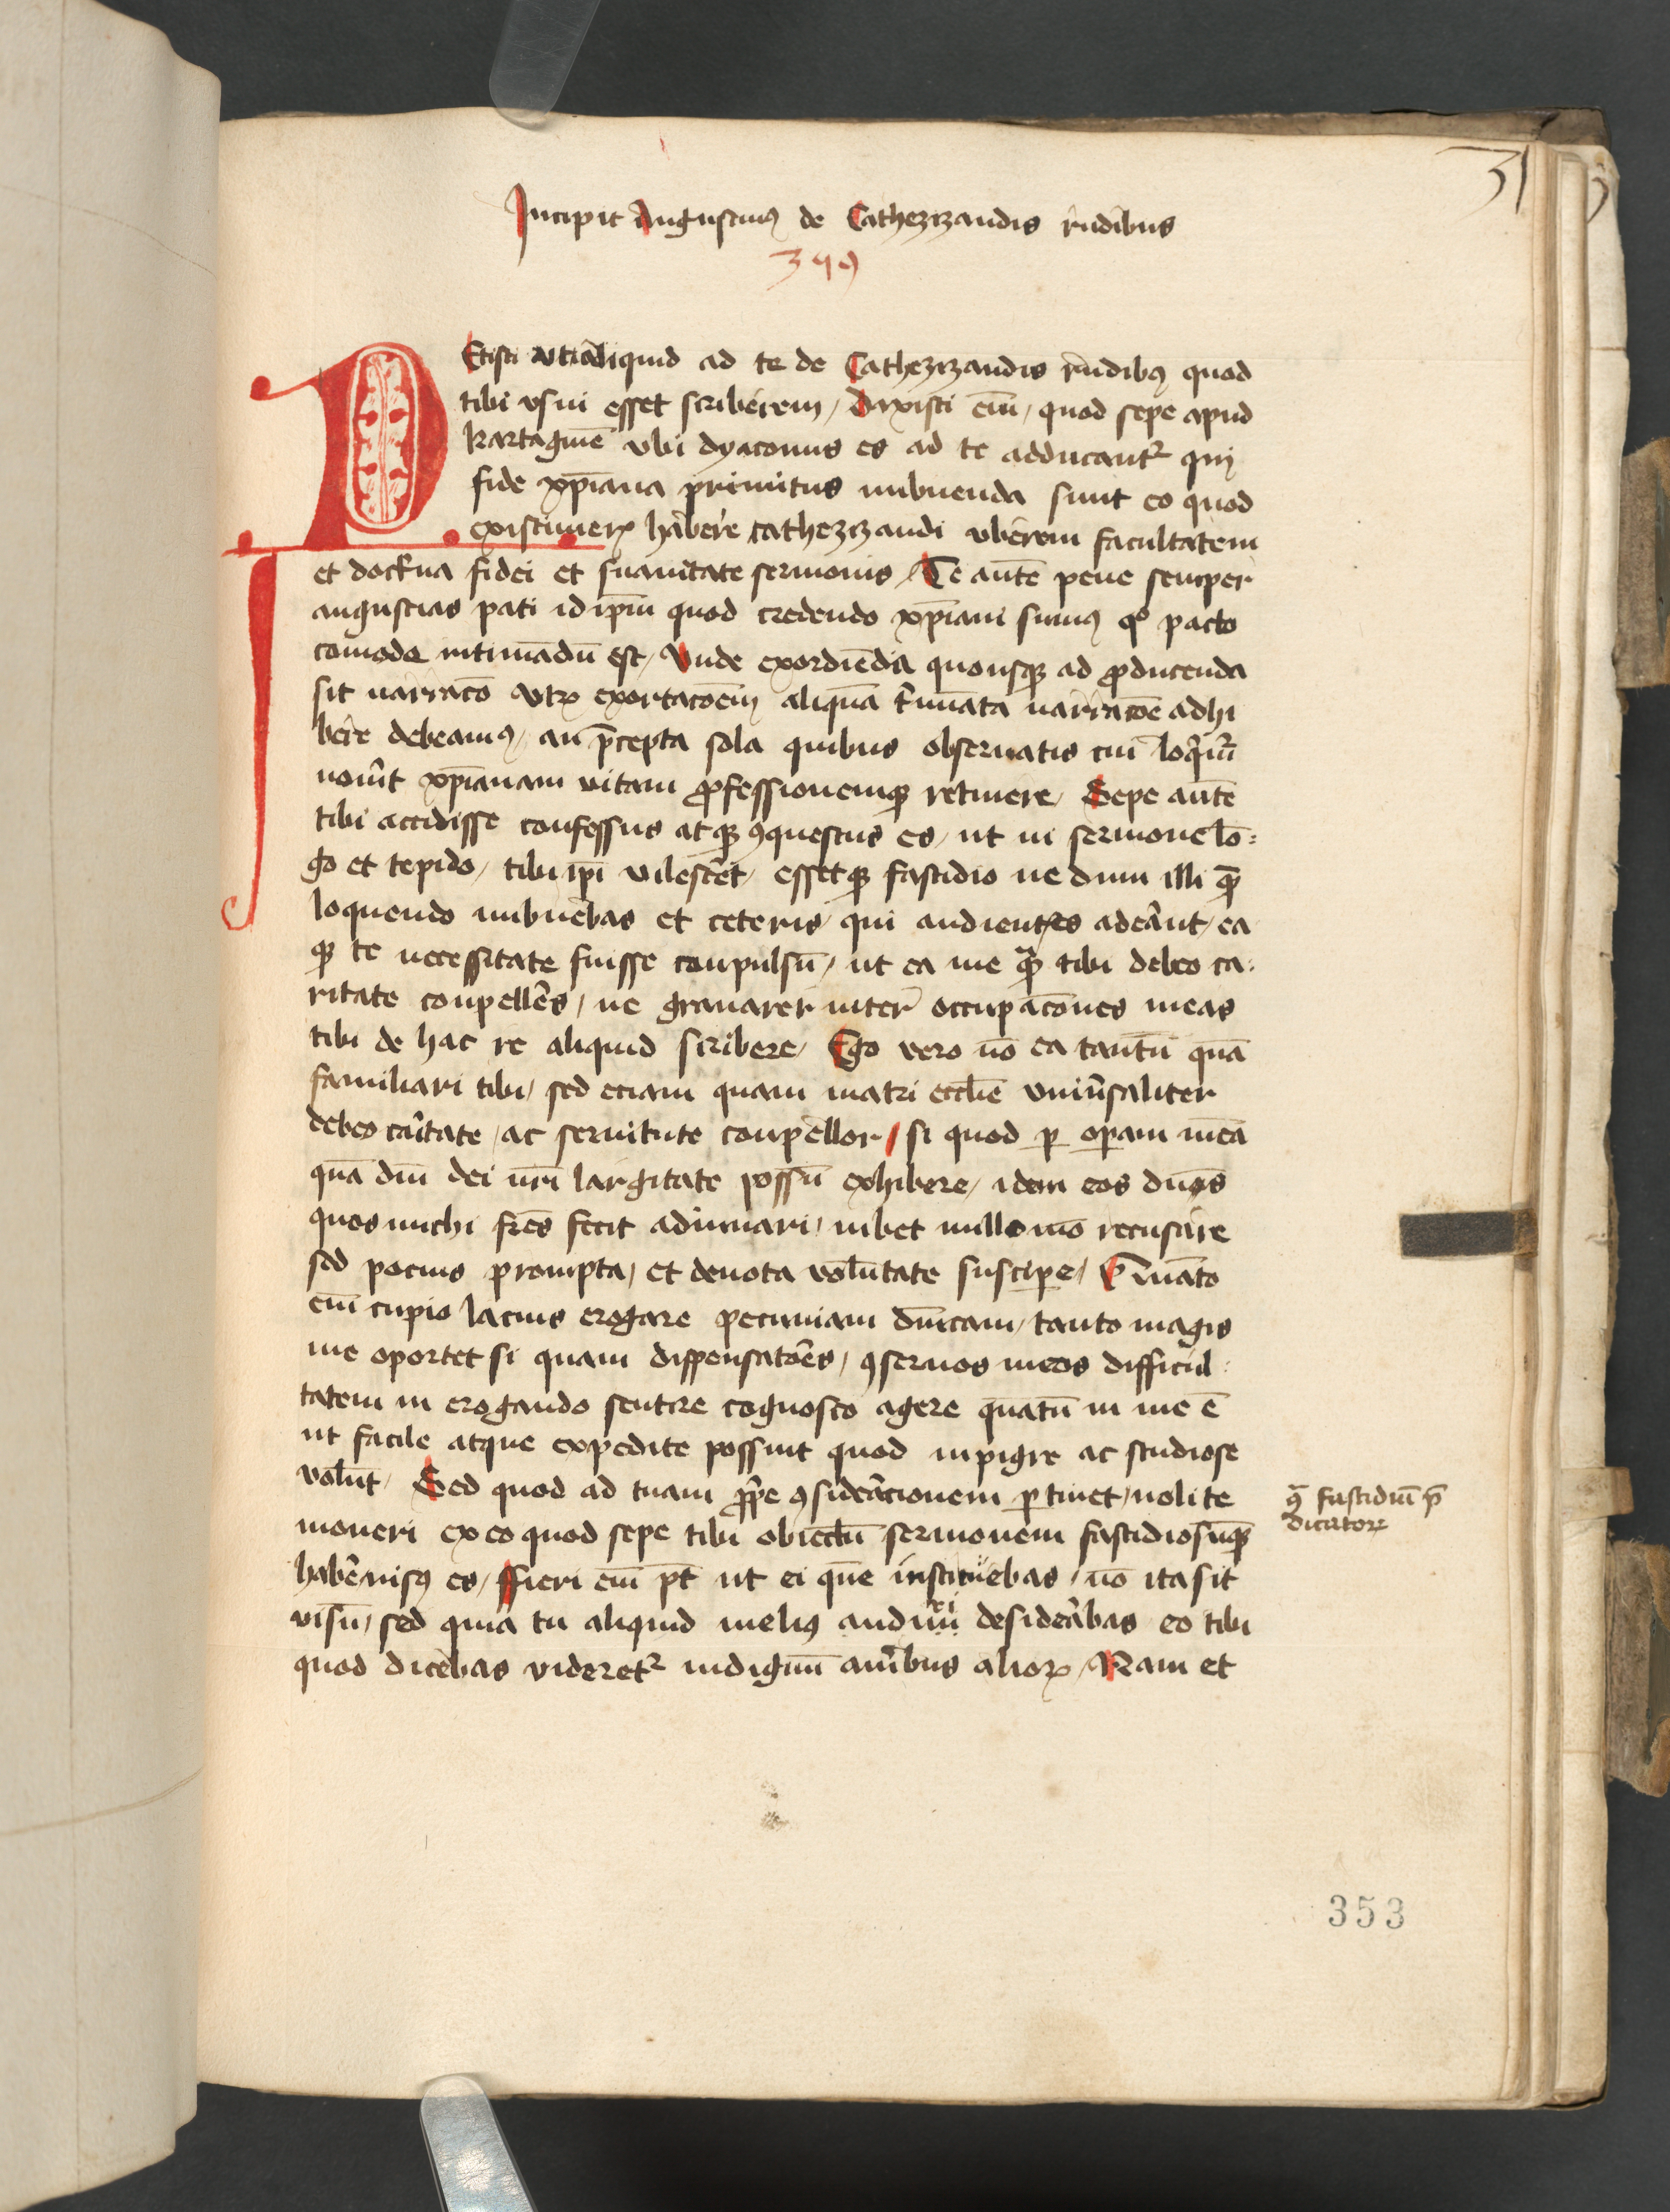 31
Incipit Augustinꝰ de Cathezizandis rudibus
399
PEtisti vt aliquid ad te de Cathezizandis rudibꝫ quod
tibi vsui esset scriberem / Dixisti em̄ / quod sepe apud
kartaginē vbi dyaconus es ad te adducantᷣ qui
fide xp̄iana primitus imbuenda sunt eo quod
existimerꝫ habere cathezizandi vberem facultatem
et doctͥna fidei et suauitate sermonis / Te autē pene semper
angustias pati id ip̄m quod credendo xp̄iani sumꝰ qͦ pacto
comode intimādū est / Vnde exordiēda quousqꝫ ad ꝓducenda
sit narracō vtꝝ exortacōem aliquā tͥmiāta narracōe adhi
bere debeamꝰ / an p̄cepta sola quibus obseruatis cui loqͥmͬ
norit xp̄ianam vitam ꝓfessionemqꝫ retinere / Sepe autē
tibi accidisse confessus atqꝫ ꝯquestus es / ut in sermone lō=
go et tepido / tibi ip̄i vilesceret / essetqꝫ fastidio ne dum illi quē
loquendo imbuebas et ceteris / qui audientes aderant / ea
qꝫ te necessitate fuisse conpulsū / ut ea me quā tibi debeo ca=
ritate conpelleres / ne grauarer inter occupacōnes meas
tibi de hac re aliquid scribere / Ego vero nō ea tantū quā
familiari tibi / sed eciam quam matri eccl̄ie vniuersaliter
debeo caritate / ac seruitute conpellor / si quod ꝑ operam meā
quā dn̄i dei nr̄i largitate possū exhibere / idem eos dn̄os
quos michi fr̄es fecit adiuuari / iubet nullo mō recusare
sed pocius prompta / et deuota volūtate suscipere / Quāto
em̄ cupio lacius erogare pecuniam dn̄icam / tanto magis
me oportet si quam dispensatōes / ꝯseruos meos difficul=
tatem in erogando sentire cognosco agere quātū in me ē
ut facile atque expedite possint quod inpigre ac studiose
volūt / Sed quod ad tuam ꝓprie ꝯsideracionem ꝑtinet / nolite
moueri ex eo quod sepe tibi obiectū sermonem fastidiosūqꝫ
habere uisꝰ es / ffieri em̄ pt̄ ut ei quē instituebas / nō ita sit
visū / sed quia tu aliquid meliꝰ audiri desiderabas eo tibi
quod dicebas videretᷣ indignū auribus alioꝝ / Nam et
ꝯ̄ fastidiū p̄
dicatoꝝ
353